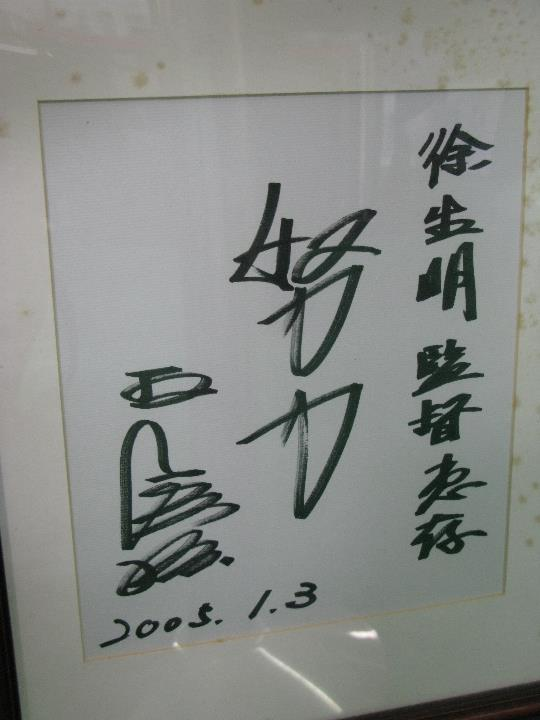 徐生明監督惠存
努力
2005.1.3